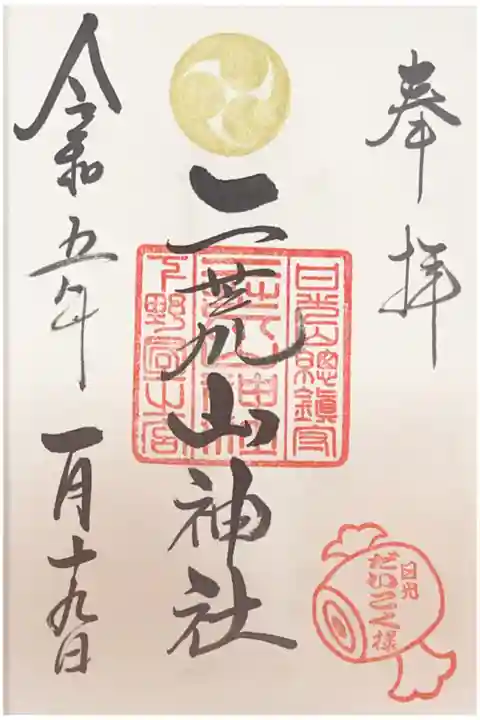 奉拝
二荒山神社
日光山總鎮守
二荒山神社
下野國一之宮
令和五年一月十九日
日光
だいこく様